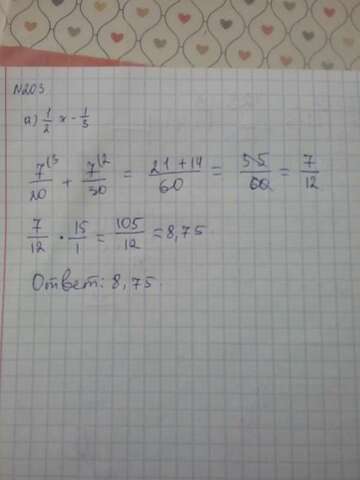 №203
а) 1/2 х - 1/3
7⁽³/20 + 7⁽²/30 = 21+14/60 = 35/60 = 7/12
7/12 · 15/1 = 105/12 = 8,75.
Ответ: 8,75.